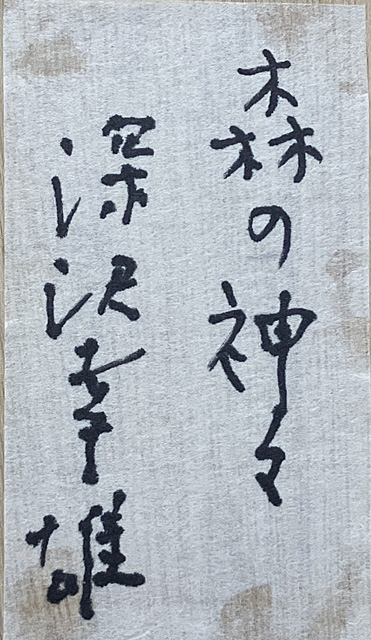 森の神々
深沢幸雄